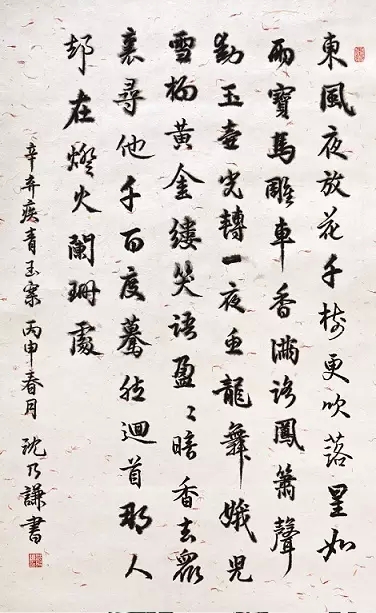 東風夜放花千樹更吹落星如
雨寶馬雕車香滿路鳳簫聲
動玉壺光轉一夜魚龍舞娥兒
雪柳黃金縷笑語盈〻暗香去眾
裏尋他千百度驀然迴首那人
却在燈火闌珊處
辛弃疾青玉案 丙申春月 沈乃謙書